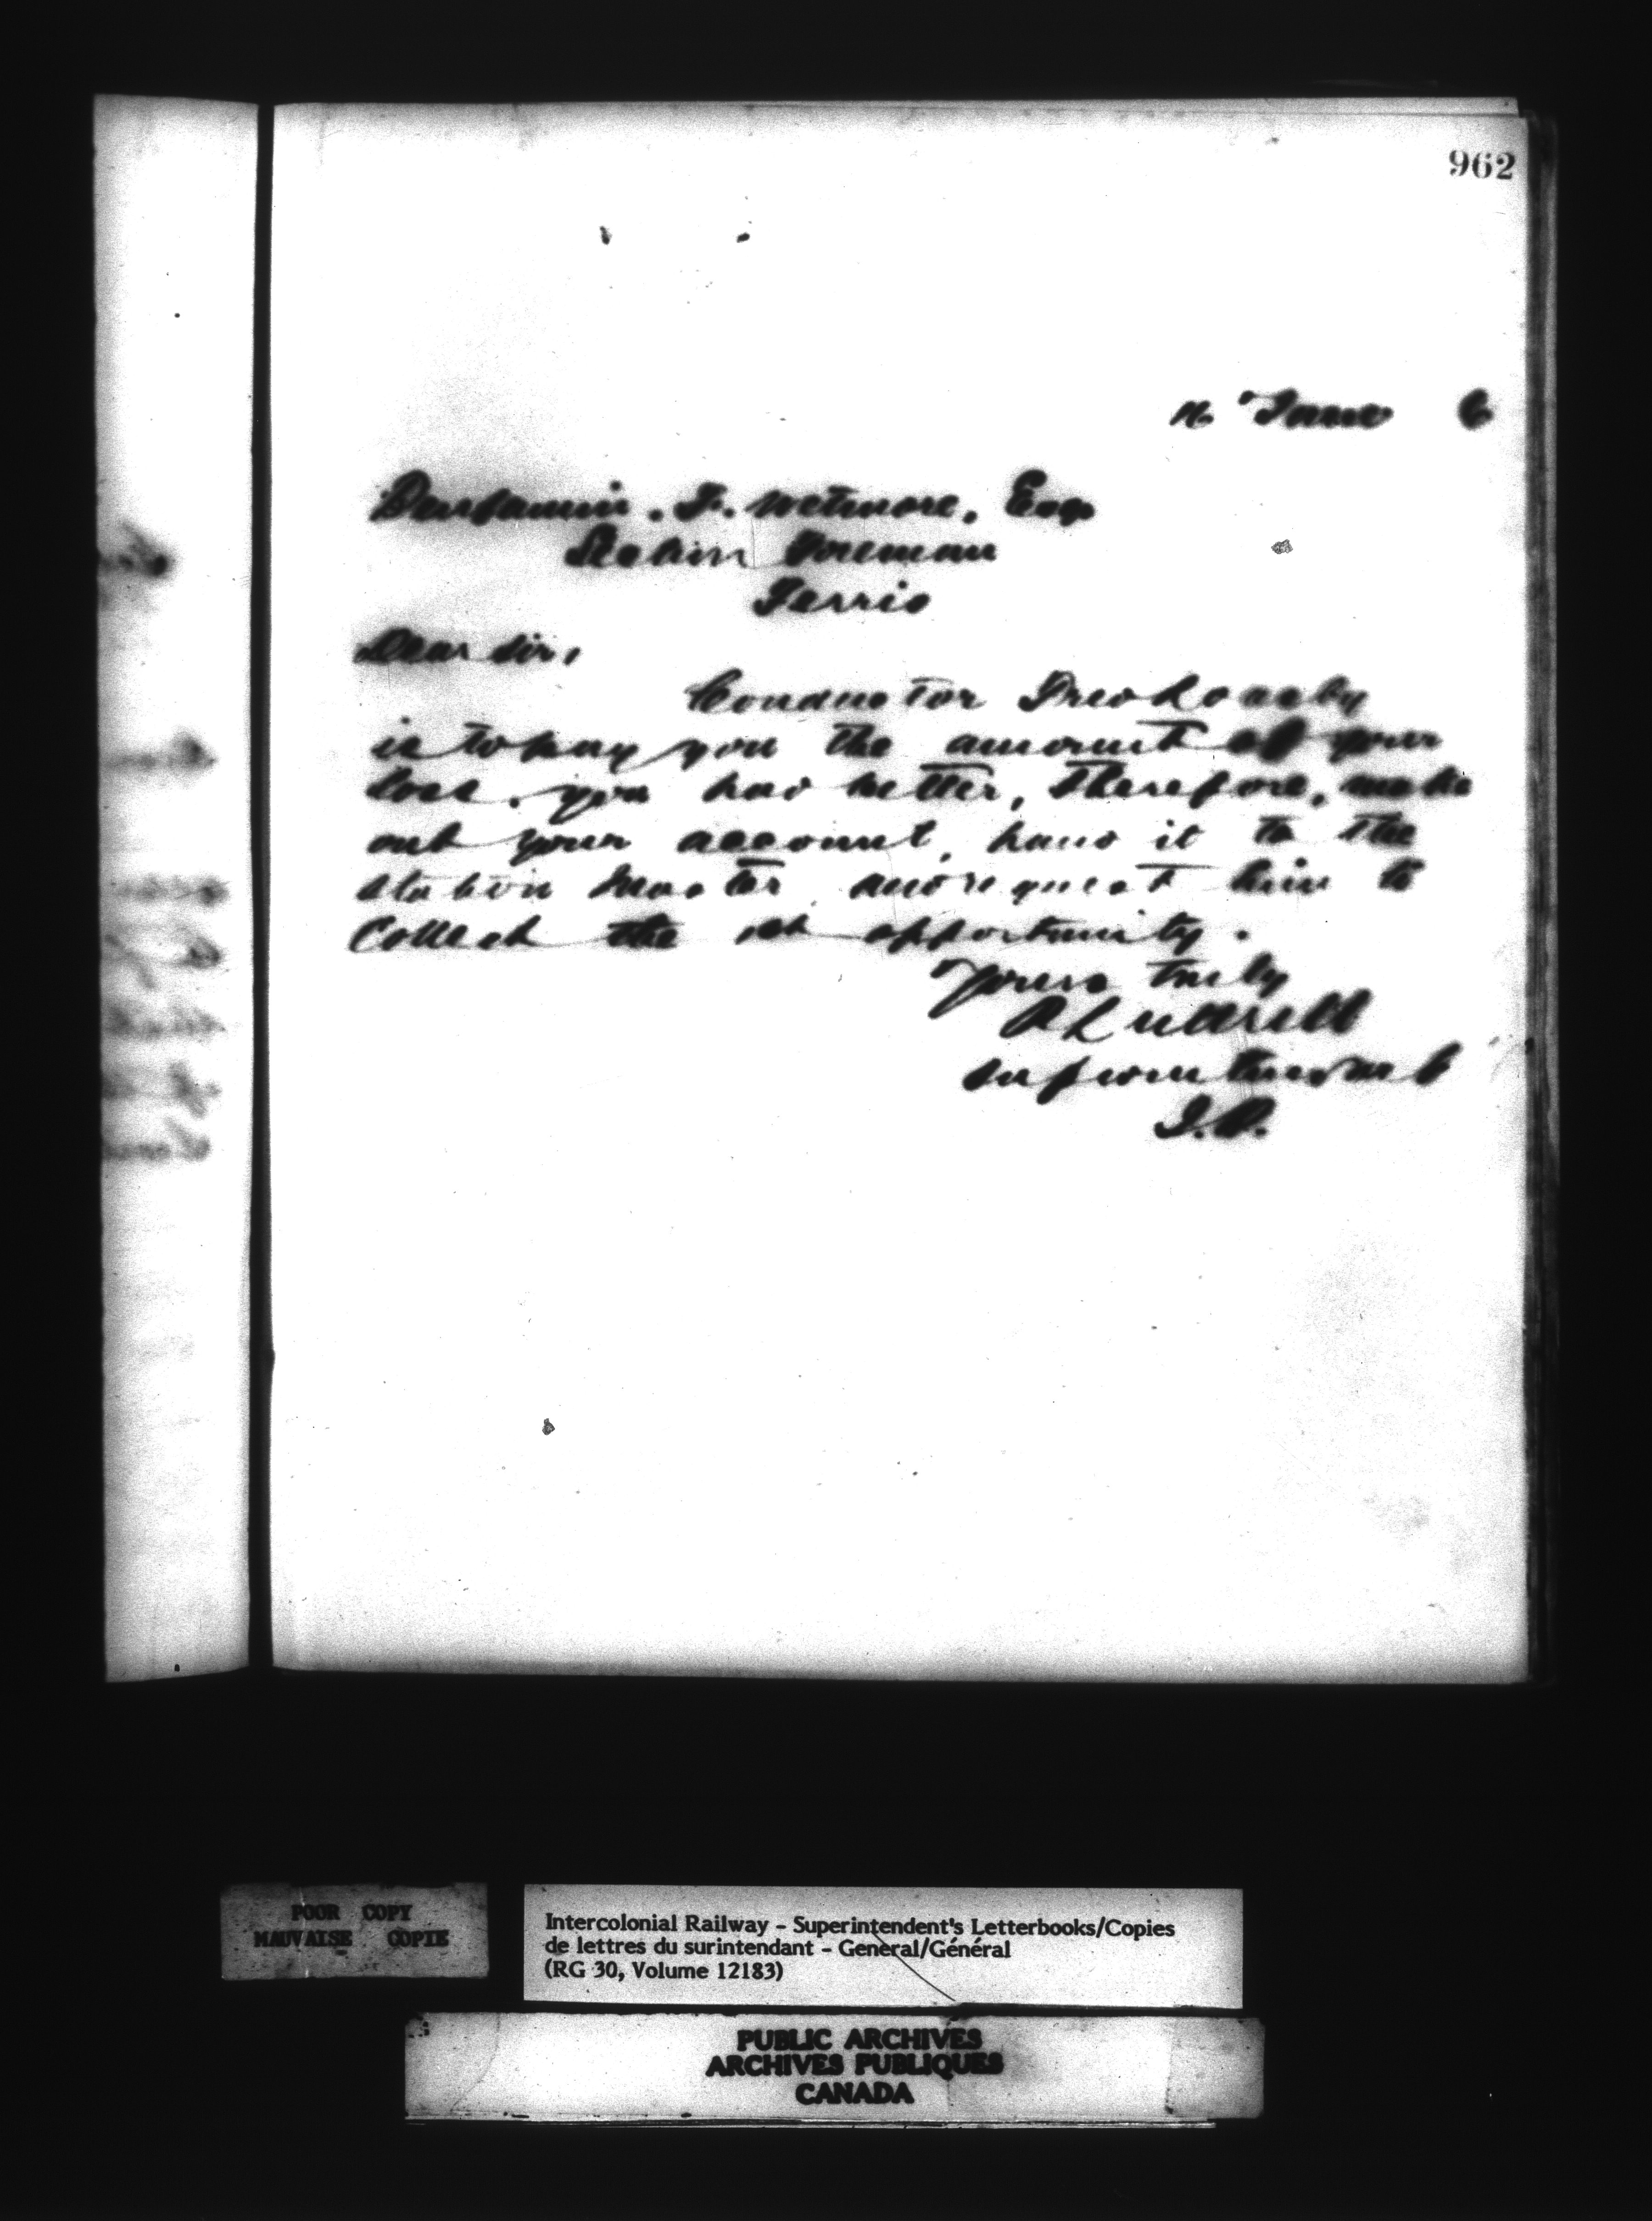 962
16 June 6
Benjamin. F. Wetmore. Esq
Section Foreman
Ferris
Dear Sir,
Conductor
is to pay you the amount of your
loss. you had better, Therefore, make
out your account, hand it to the
station Master and request him to
Collect the 1st opportunity.
Yours truly
R Luttrell
Superintendent
I.R.
POOR COPY
MAUVAISE COPIE
Intercolonial Railway - Superintendent's Letterbooks/Copies
de lettres du surintendant - General/Général
(RG 30, Volume 12183)
PUBLIC ARCHIVES
ARCHIVES PUBLIQUES
CANADA